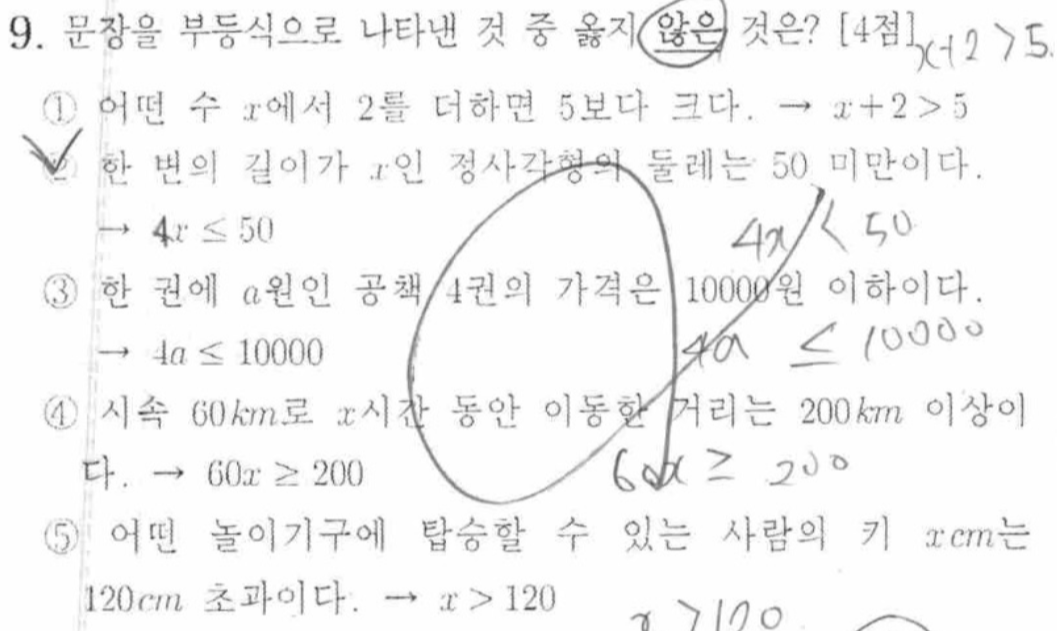 9. 문장을 부등식으로 나타낸 것 중 옳지 않은 것은? [4점] x+2 > 5.
① 어떤 수 x에서 2를 더하면 5보다 크다. → x+2 > 5
② 한 변의 길이가 x인 정사각형의 둘레는 50 미만이다.
→ 4x ≤ 50
4x < 50
③ 한 권에 a원인 공책 4권의 가격은 10000원 이하이다.
→ 4a ≤ 10000
4a ≤ 10000
④ 시속 60km로 x시간 동안 이동한 거리는 200km 이상이
다. → 60x ≥ 200
60x ≥ 200
⑤ 어떤 놀이기구에 탑승할 수 있는 사람의 키 xcm는
120cm 초과이다. → x > 120
x > 120